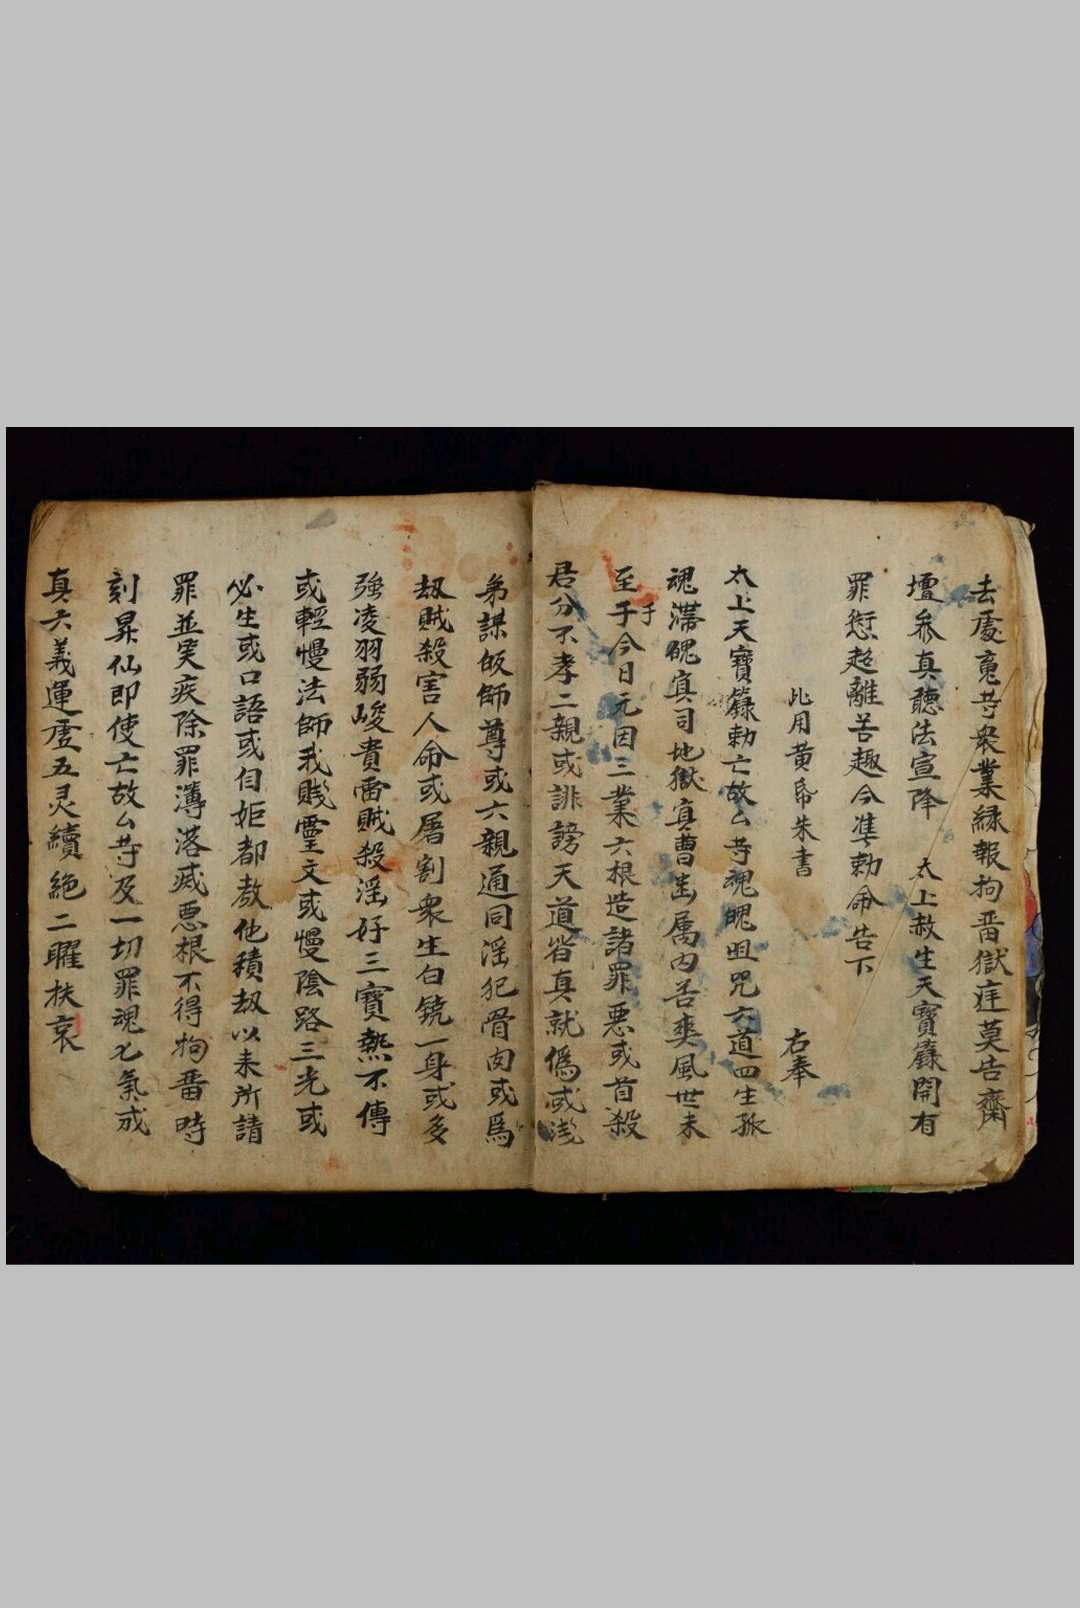 去處寃䒭衆業緣報拘畨獄庭莫告齋
壇叅真聽法宣降　太上赦生天寶籙開有
罪愆超離苦趣今准勅命告下
此用黄帋朱書　右奉
太上天寶籙勅亡故厶䒭魂魄咀咒六道四生孤
魂滯魄寘司地獄真曹峀属内苦爽風世未
至于于今日元因三業六根造諸罪惡或首殺
君分不孝二親或誹謗天道省真就僞或浅
弟謀皈師尊或六親通同淫犯骨肉或爲
刼賊殺害人命或屠割衆生白鐃一身或多
強凌羽弱峻貴雷賊殺淫好三寶㷱不傳
或輕慢法師我賤靈文或慢陰路三光或
必生或口語或自妬都敖他積刼以未所請
罪並笶疾除罪簿落滅惡根不得拘畨時
刻昇仙即使亡故厶䒭及一切罪魂乞氣成
真六義運虗五灵續絶二曜扶哀